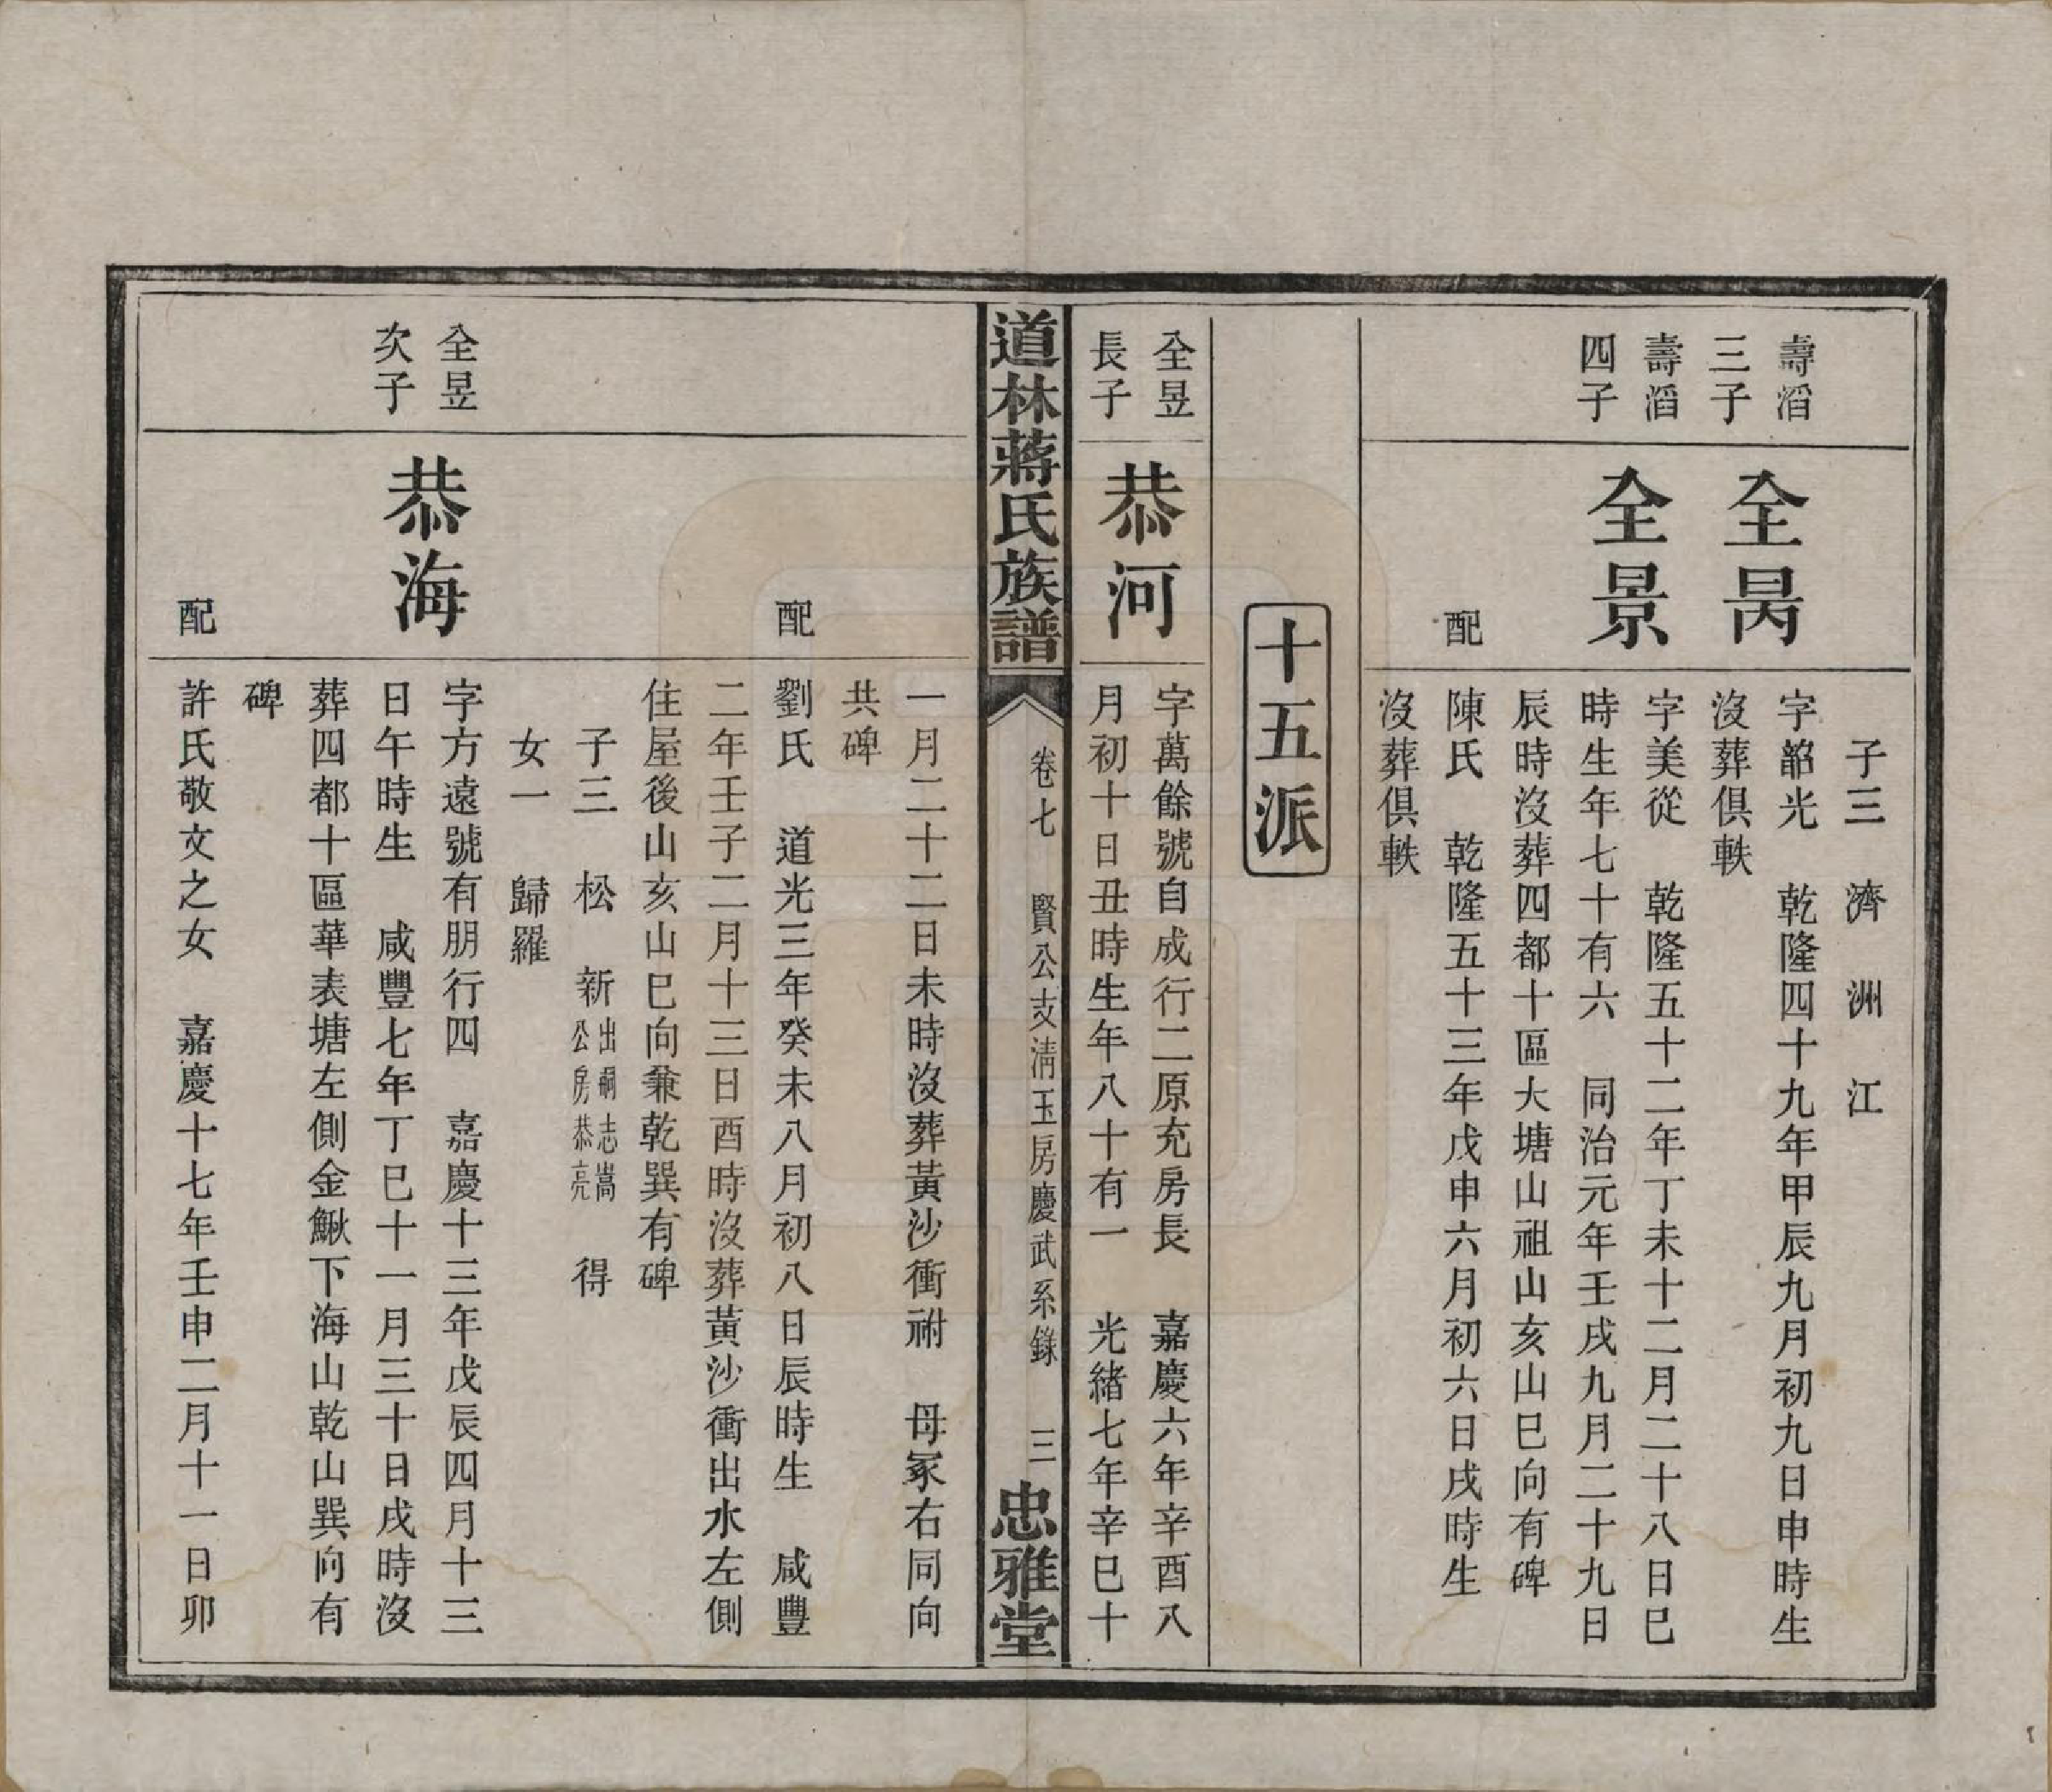 子三　濟　洲　江
壽滔
三子
全昺
字韶光　乾隆四十九年甲辰九月初九日申時生
沒葬俱軼
壽滔
四子
全景
字美從　乾隆五十二年丁未十二月二十八日巳
時生年七十有六　同治元年壬戌九月二十九日
辰時沒葬四都十區大塘山祖山亥山巳向有碑
配
陳氏　乾隆五十三年戊申六月初六日戌時生
沒葬俱軼
十五派
全昱
長子
恭河
字萬餘號自成行二原充房長　嘉慶六年辛酉八
月初十日丑時生年八十有一　光緒七年辛巳十
道林蔣氏族譜
卷七　賢公支淸玉房慶武系錄　三
忠雅堂
一月二十二日未時沒葬黃沙衝祔　母冢右同向
共碑
配
劉氏　道光三年癸未八月初八日辰時生　咸豐
二年壬子二月十三日酉時沒葬黃沙衝出水左側
住屋後山亥山巳向兼乾巽有碑
子三　松　新出嗣志嵩公房恭亮　得
女一　歸羅
全昱
次子
恭海
字方遠號有朋行四　嘉慶十三年戊辰四月十三
日午時生　咸豐七年丁巳十一月三十日戌時沒
葬四都十區華表塘左側金鰍下海山乾山巽向有
碑
配
許氏敬文之女　嘉慶十七年壬申二月十一日卯